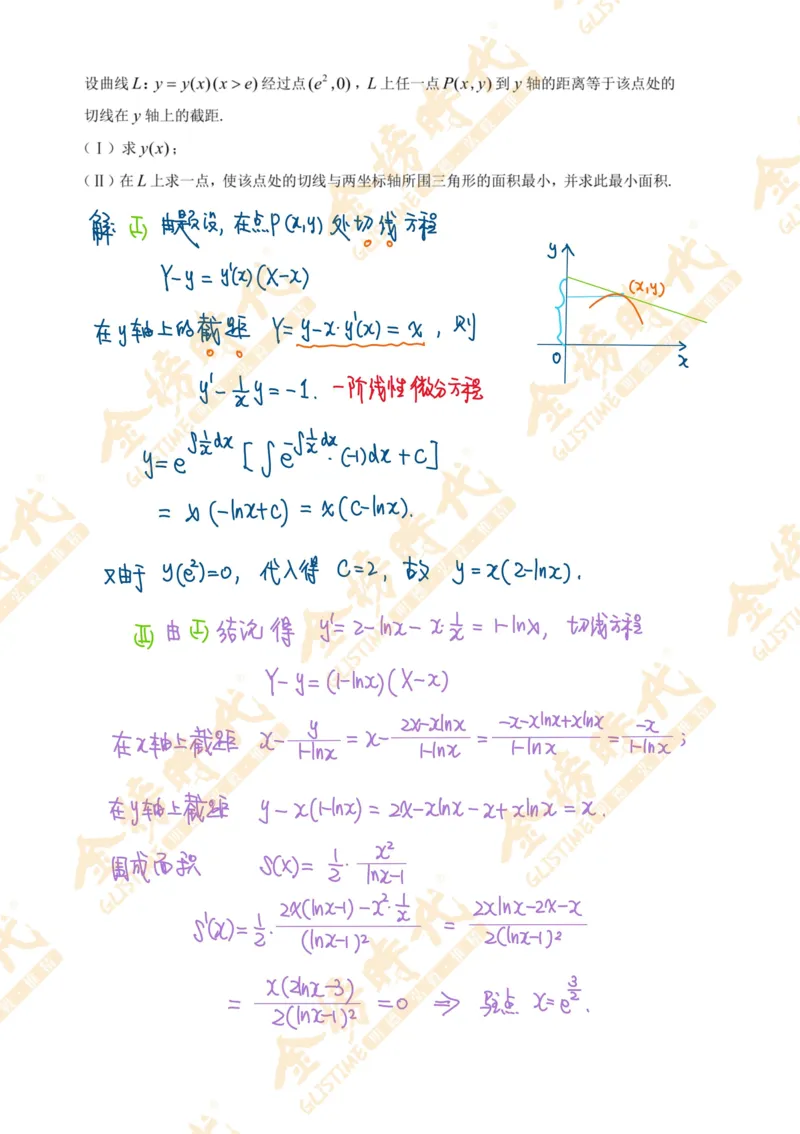 设曲线L: y = y(x)(x > e)经过点(e²,0), L上任一点P(x,y)到y轴的距离等于该点处的
切线在y轴上的截距.
(Ⅰ)求y(x);
(Ⅱ)在L上求一点,使该点处的切线与两坐标轴所围三角形的面积最小,并求此最小面积.
解 (I) 由题设, 在点P(x,y) 处切线方程
Y-y = y'(x)(X-x)
在y轴上的截距 Y= y-x·y'(x) = x , 则
y' - 1/x y = -1. 一阶线性微分方程
y= e^{∫1/x dx} [∫e^{-∫1/x dx}·(-1)dx + C]
= x(-lnx+c) = x(C-lnx).
又由于 y(e²)=0, 代入得 C=2, 故 y = x(2-lnx).
y
(x,y)
0
x
(II) 由(I)结论得 y' = 2-lnx - x·1/x = 1-lnx, 切线方程
Y-y = (1-lnx)(X-x)
在x轴上截距 x - y/(1-lnx) = x - (2x-xlnx)/(1-lnx) = (-x-xlnx+xlnx)/(1-lnx) = -x/(1-lnx) ;
在y轴上截距 y-x(1-lnx) = 2x-xlnx-x+xlnx = x.
围成面积 S(x) = 1/2 · x²/(lnx-1)
S'(x) = 1/2 · (2x(lnx-1)-x²·1/x)/(lnx-1)² = (2xlnx-2x-x)/(2(lnx-1)²)
= x(2lnx-3)/(2(lnx-1)²) = 0 ⇒ 驻点 x=e^{3/2}.
金榜時代
GLISTIME